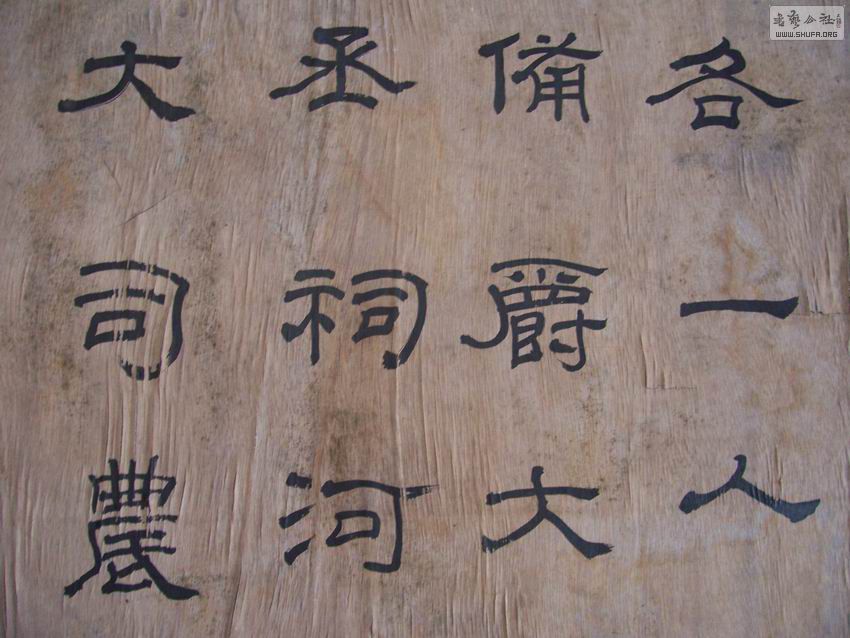 各一人
備爵大
丞祠河
大司農
書藝公社
WWW.SHUFA.ORG